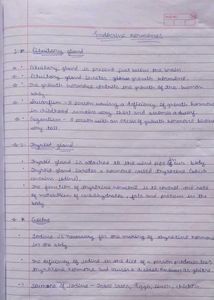 Endocrine hormones
Pituitary gland
Pituitary gland is present just below the brain.
Pituitary gland secretes growth hormone.
The growth hormone controls the growth of the human
body.
Dwarfism - A person having a deficiency of growth hormones
in childhood remains very short and become a dwarf.
Gigantism - A person with an excess of growth hormones becomes
very tall
Thyroid gland
Thyroid gland is attached to the wind pipe of our body.
Thyroid gland secretes a hormone called thyroxine (which
contains iodine).
The function of thyroxine hormone is to control the rate
of metabolism of carbohydrates, fats and proteins in the
body.
Iodine is necessary for the making of thyroxine hormone
in the body
The deficiency of iodine in the diet of a person produces less
thyroxine hormone and causes a disease known as goitre
Sources of iodine -